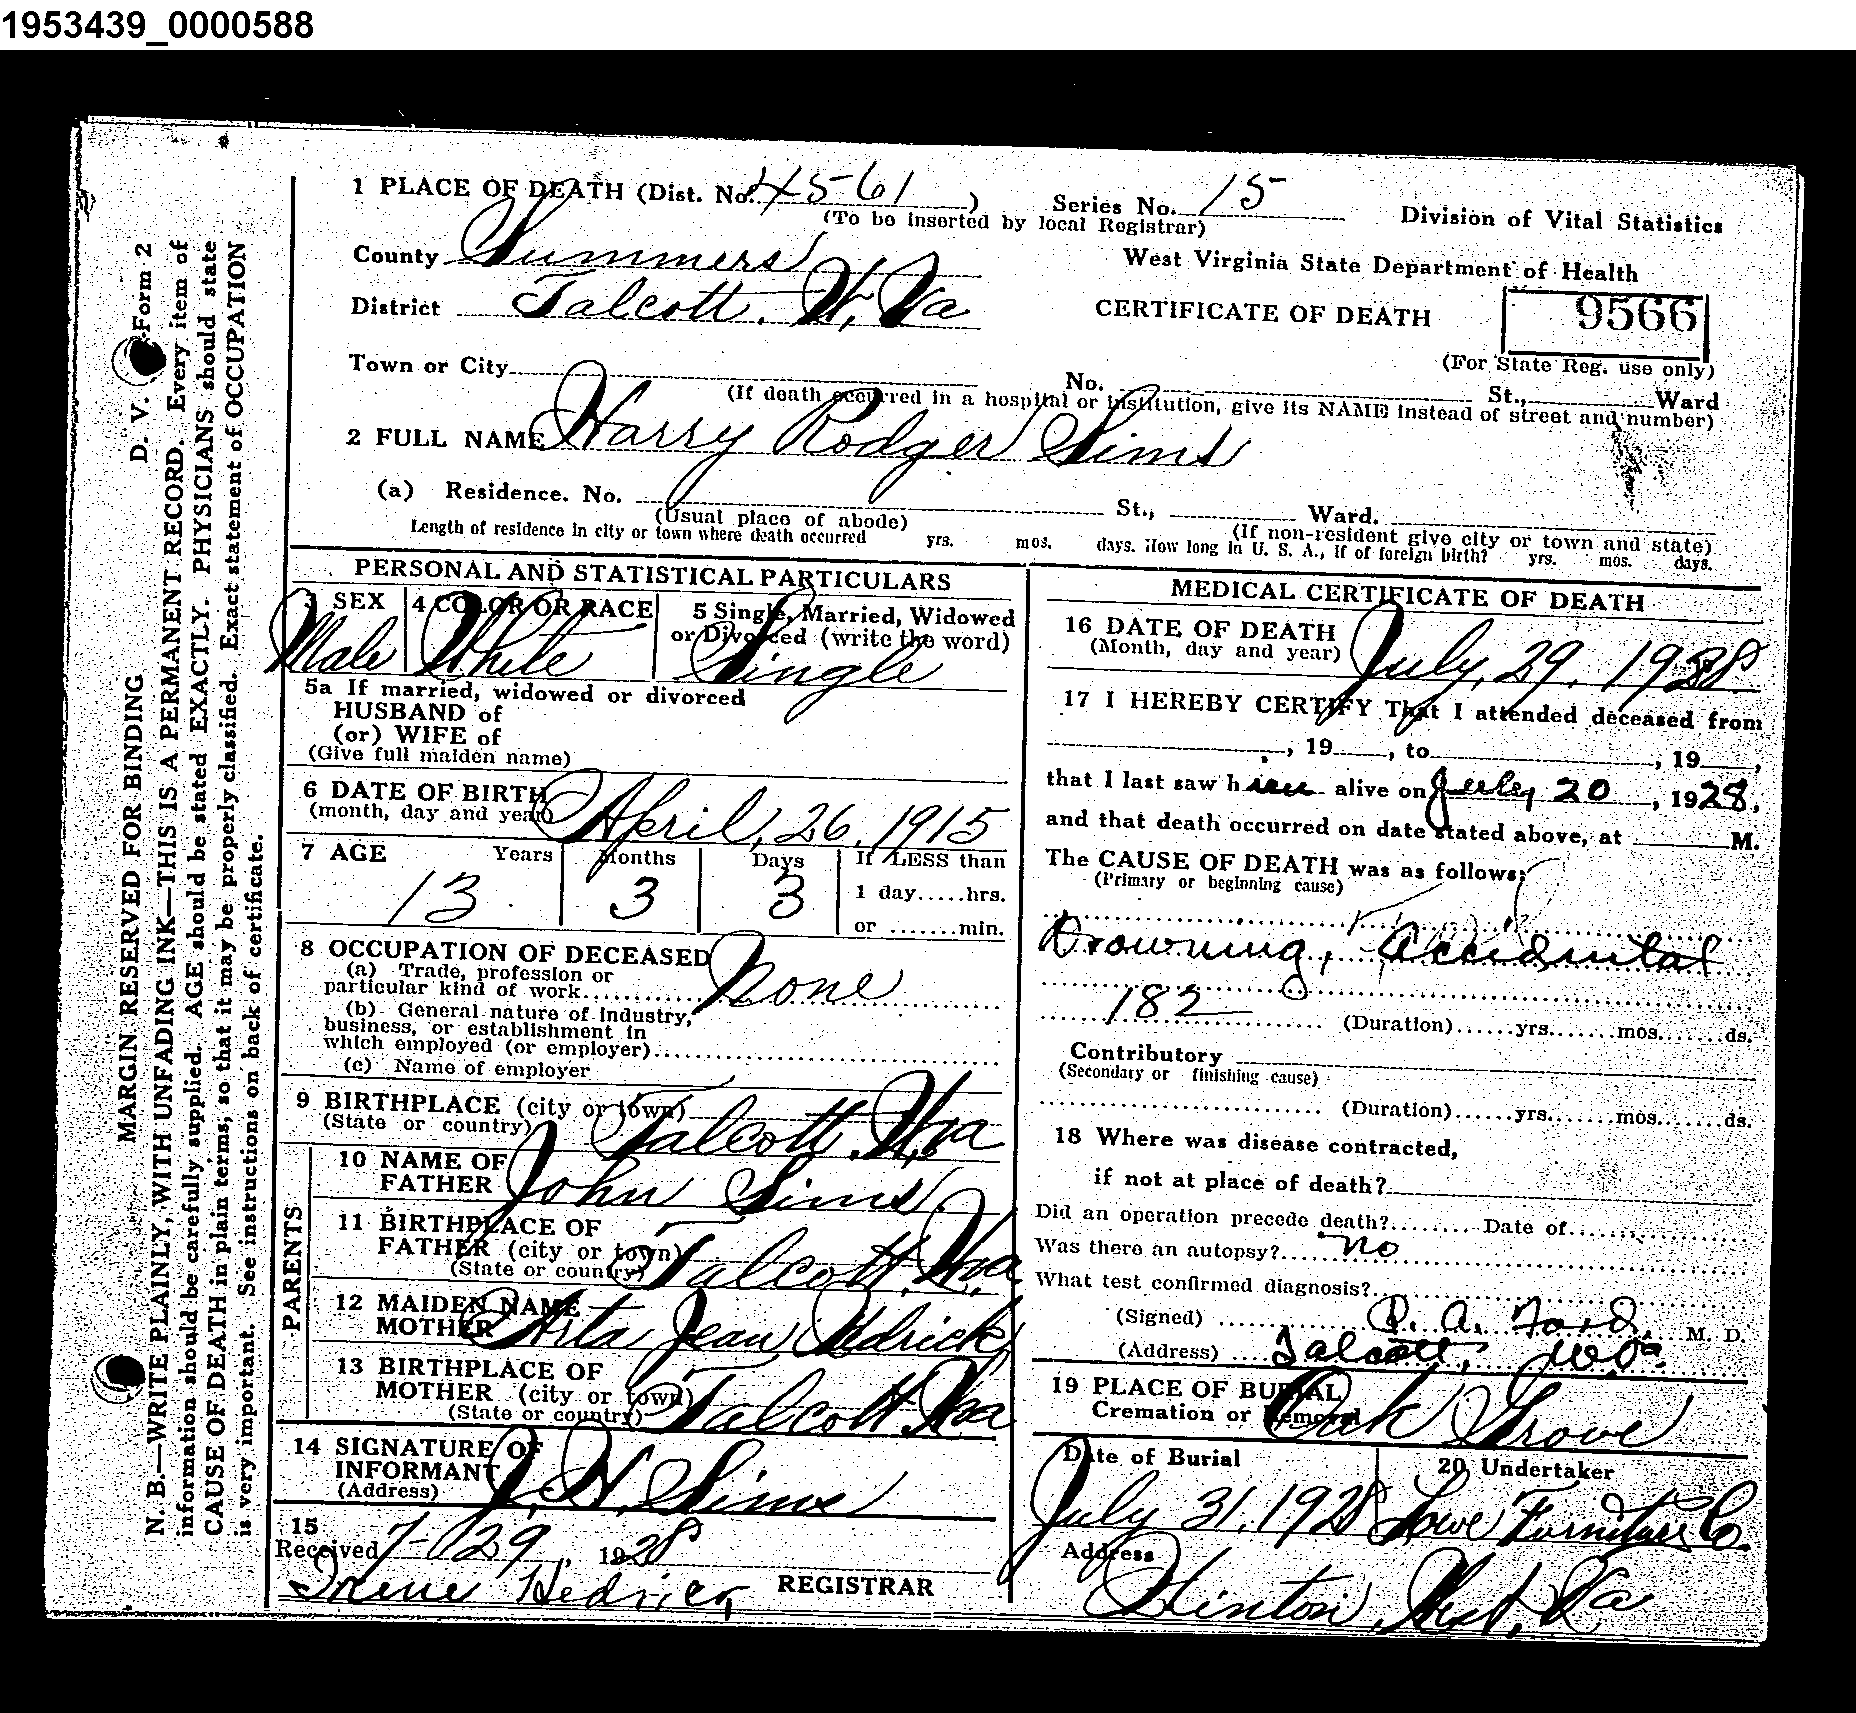 1953439_0000588
1 PLACE OF DEATH (Dist. No. 4561) Series No. 15 Division of Vital Statistics
(To be inserted by local Registrar)
County Summers West Virginia State Department of Health
District Talcott. W. Va CERTIFICATE OF DEATH 9566
(For State Reg. use only)
Town or City No. St., Ward
(If death occurred in a hospital or institution, give its NAME instead of street and number)
2 FULL NAME Harry Rodger Sims
(a) Residence. No. St., Ward.
(Usual place of abode) (If non-resident give city or town and state)
Length of residence in city or town where death occurred yrs. mos. days. How long in U. S. A., if of foreign birth? yrs. mos. days.
PERSONAL AND STATISTICAL PARTICULARS
3 SEX 4 COLOR OR RACE 5 Single, Married, Widowed
or Divorced (write the word)
Male White Single
5a If married, widowed or divorced
HUSBAND of
(or) WIFE of
(Give full maiden name)
6 DATE OF BIRTH
(month, day and year) April, 26, 1915
7 AGE Years Months Days If LESS than
13 3 3 1 day.....hrs.
or .......min.
8 OCCUPATION OF DECEASED
(a) Trade, profession or
particular kind of work None
(b) General nature of industry,
business, or establishment in
which employed (or employer)
(c) Name of employer
9 BIRTHPLACE (city or town)
(State or country) Talcott. W.Va
PARENTS
10 NAME OF
FATHER John Sims
11 BIRTHPLACE OF
FATHER (city or town)
(State or country) Talcott. W.va
12 MAIDEN NAME
MOTHER Arta Jean Hedrick
13 BIRTHPLACE OF
MOTHER (city or town)
(State or country) Talcott Wva
14 SIGNATURE OF
INFORMANT J. H. Sims
(Address)
15
Received 7-29, 1928
Irene Hedrick REGISTRAR
MEDICAL CERTIFICATE OF DEATH
16 DATE OF DEATH
(Month, day and year) July, 29, 1928
17 I HEREBY CERTIFY That I attended deceased from
, 19 , to , 19 ,
that I last saw him alive on July 20, 1928,
and that death occurred on date stated above, at M.
The CAUSE OF DEATH was as follows:
(Primary or beginning cause)
Drowning, Accidental
182 (Duration)......yrs.......mos.......ds.
Contributory
(Secondary or finishing cause)
(Duration)......yrs.......mos.......ds.
18 Where was disease contracted,
if not at place of death?
Did an operation precede death?........ Date of
Was there an autopsy? no
What test confirmed diagnosis?
(Signed) P. A. Ford, M. D.
(Address) Talcott, W.Va.
19 PLACE OF BURIAL
Cremation or Removal Oak Grove
Date of Burial 20 Undertaker
July 31, 1928 Lowe Furniture Co
Address
Hinton, West, Va
D. V. S. Form 2
MARGIN RESERVED FOR BINDING
N. B.—WRITE PLAINLY, WITH UNFADING INK—THIS IS A PERMANENT RECORD. Every item of
information should be carefully supplied. AGE should be stated EXACTLY. PHYSICIANS should state
CAUSE OF DEATH in plain terms, so that it may be properly classified. Exact statement of OCCUPATION
is very important. See instructions on back of certificate.